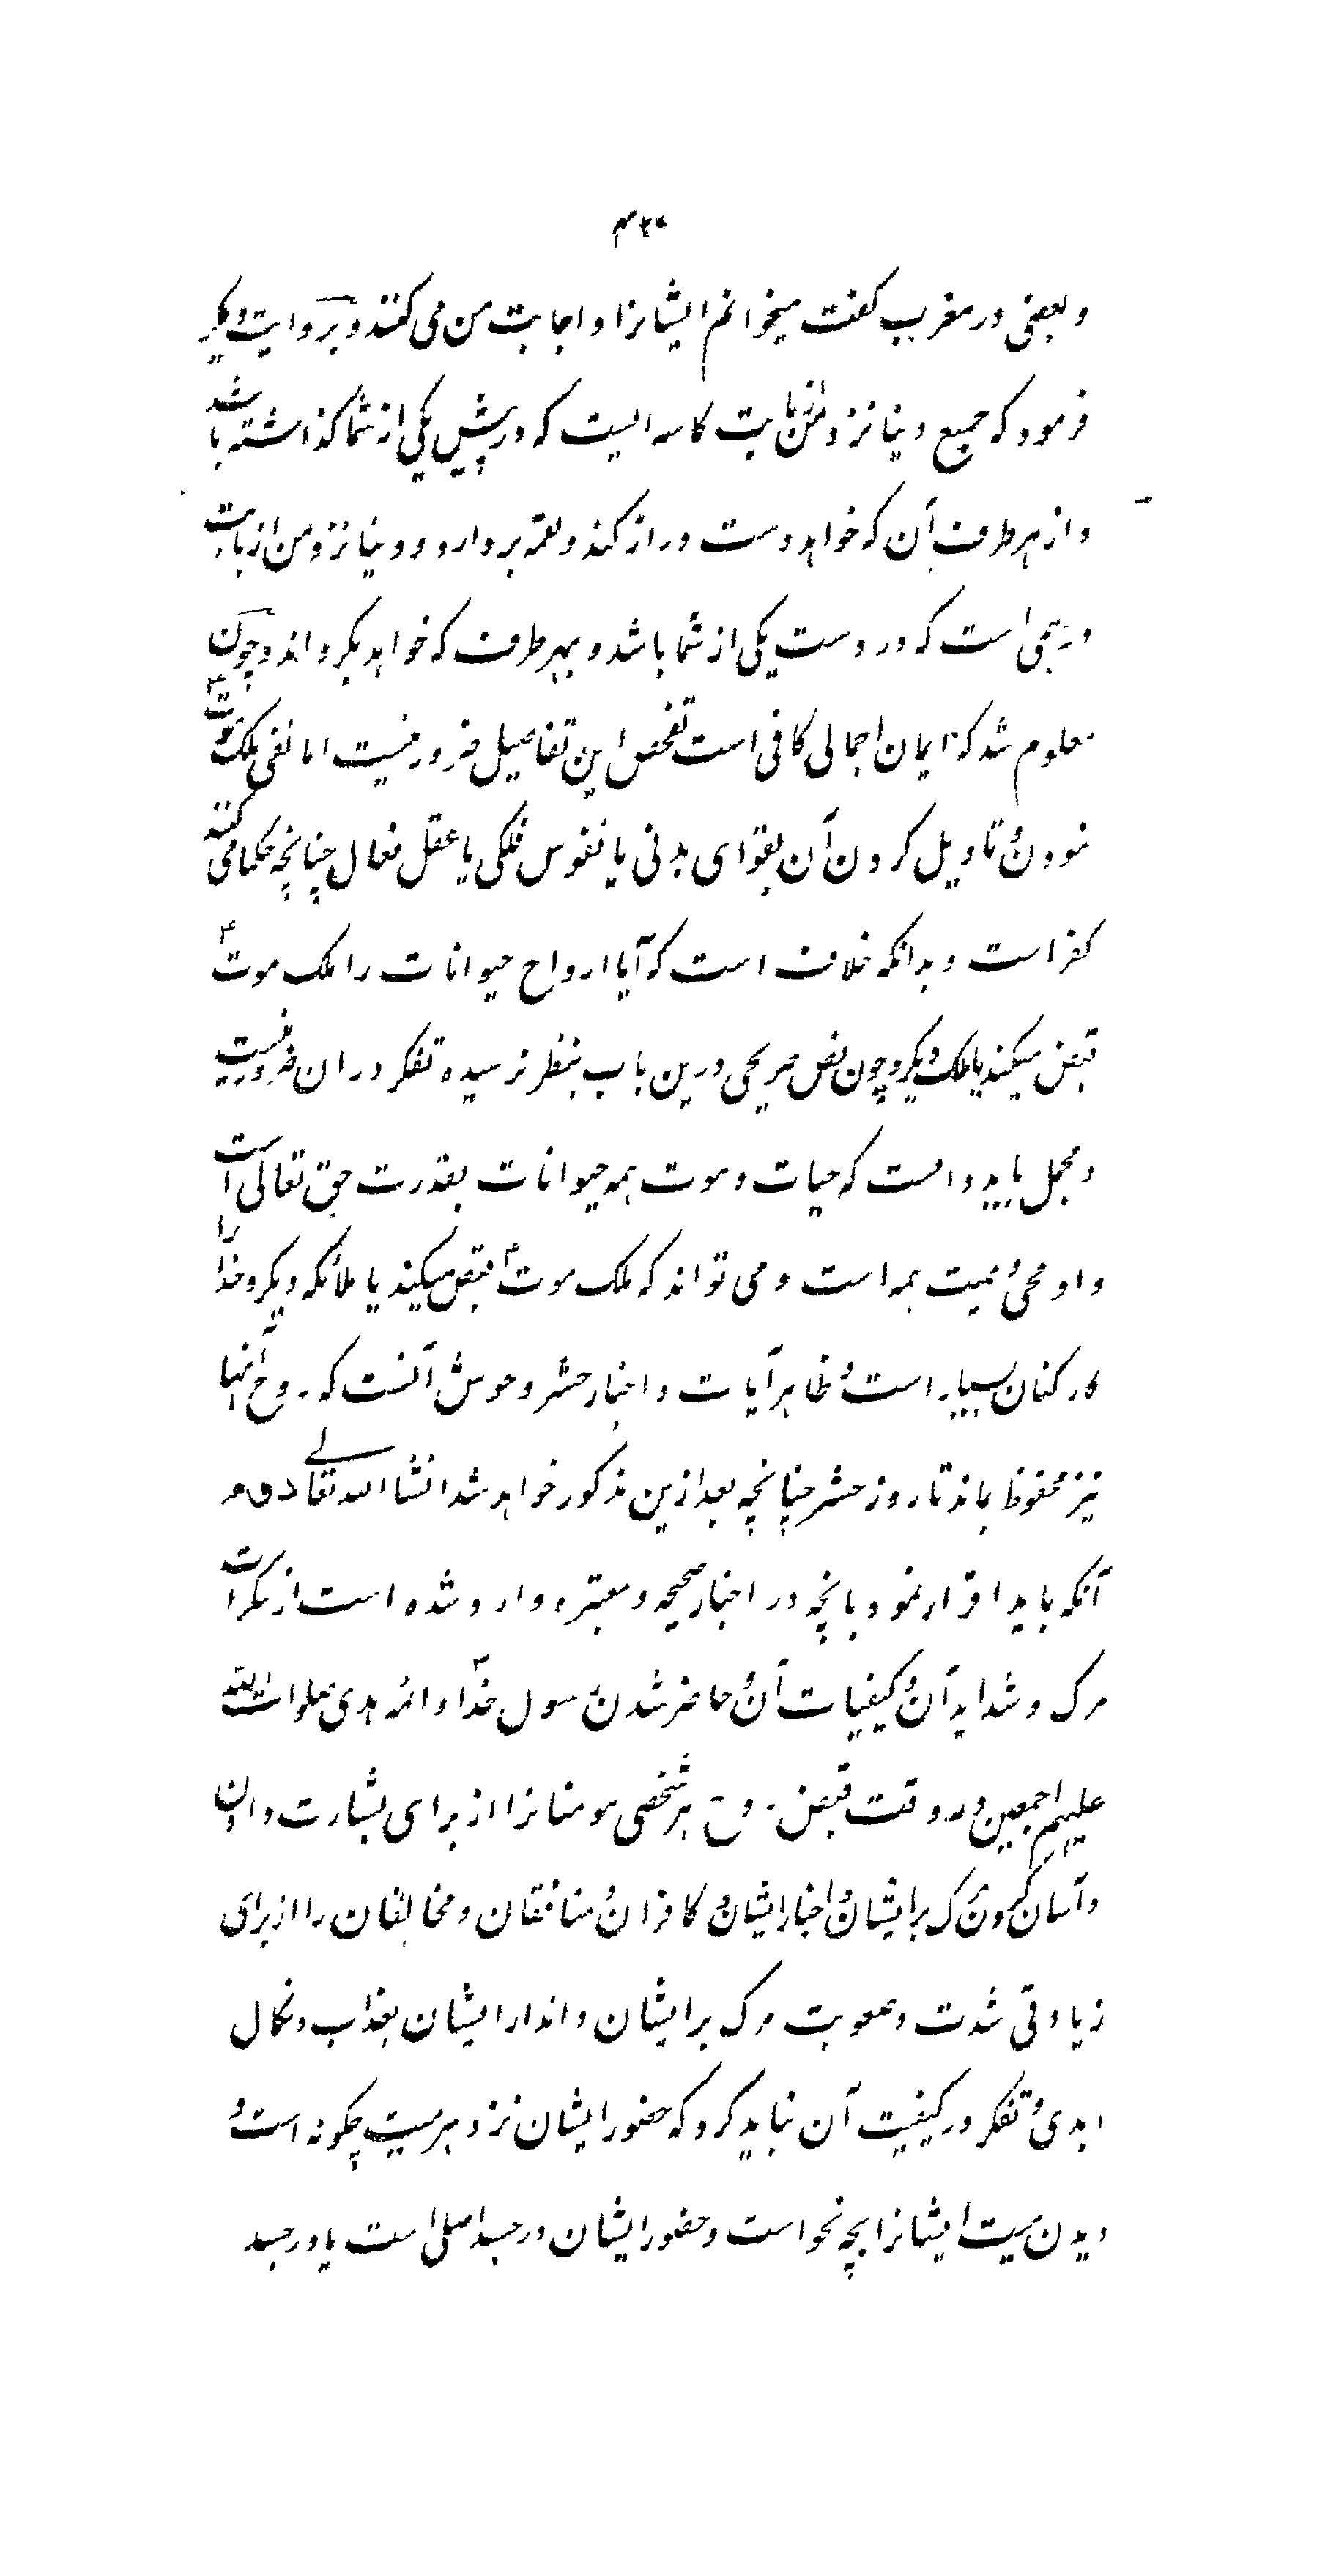 و بعضی در مغرب گفت میخوانم ایشانرا و اجابت من می کنند و بروایت دیگر
فرمود که جمیع دنیا نزد من از بابت کاسه ایست که در پیش یکی از شما گذاشته باشد
و از هر طرف آن که خواهد دست دراز کند و لقمه بردارد و دنیا نزد من از بابت
درهمی است که در دست یکی از شما باشد و بهر طرف که خواهد بگرداند و چون
معلوم شد که ایمان اجمالی کافی است تفحص این تفاصیل ضرور نیست اما نفی ملک موت
نمودن و تاویل کردن آن بقوای بدنی یا نفوس فلکی یا عقل فعال چنانچه حکما می کنند
کفر است و بدانکه خلاف است که آیا ارواح حیوانات را ملک موت
قبض میکند یا ملک دیگر و چون نص صریحی درین باب بنظر نرسیده تفکر در ان ضرور نیست
و مجمل باید دانست که حیات و موت همه حیوانات بقدرت حق تعالی است
و او محی و ممیت همه است و می تواند که ملک موت قبض میکند یا ملائکه دیگر و خدا را
کارکنان بسیار است و ظاهر آیات و اخبار حشر وحوش آنست که روح آنها
نیز محفوظ بماند تا روز حشر چنانچه بعد ازین مذکور خواهد شد انشا الله تعالی دوم
آنکه باید اقرار نمود بانچه در اخبار صحیحه و معتبره وارد شده است از سکرات
مرگ و شداید آن و کیفیات آن و حاضر شدن رسول خدا و ائمه هدی صلوات الله
علیهم اجمعین در وقت قبض روح هر شخصی مومنانرا از برای بشارت دادن
و آسان کردن مرگ بر ایشان و اخبار ایشان و کافران و منافقان و مخالفان را از برای
زیادتی شدت و صعوبت مرگ بر ایشان و انذار ایشان بعذاب و نکال
ابدی و تفکر در کیفیت آن نباید کرد که حضور ایشان نزد هر میت چگونه است و
دیدن میت ایشانرا بچه نحو است و حضور ایشان در جسد اصلی است یا در جسد